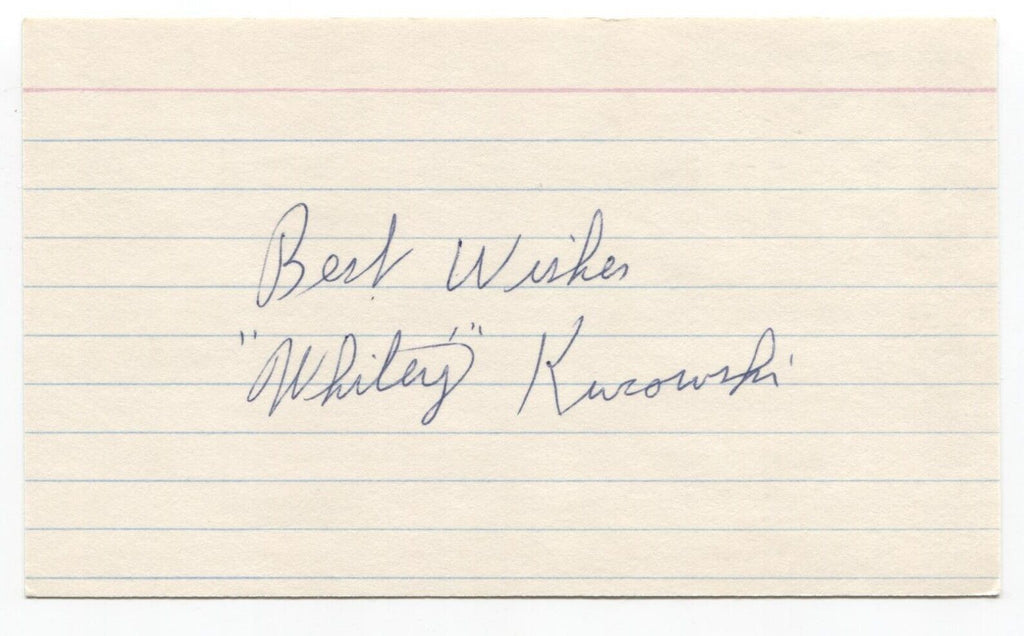 Best Wishes
"Whitey" Kurowski